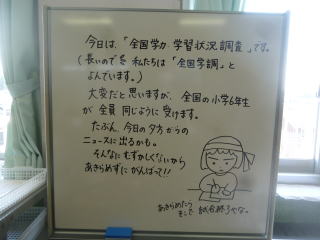 今日は、「全国学力 学習状況調査」です。
(長いので 私たちは 「全国学調」と
よんでいます。)
大変だと思いますが、全国の小学6年生
が 全員 同じように 受けます。
たぶん、今日の夕方からの
ニュースに出るかも。
そんなに むずかしくないから
あきらめずに がんばって!!
あきらめたら
そこで 試合終了やな。